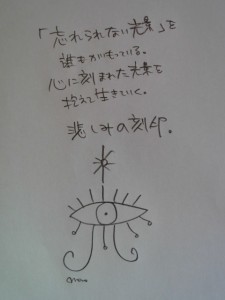 「忘れられない光景」を
誰もがもっている。
心に刻まれた光景を
抱えて生きていく。
悲しみの刻印。